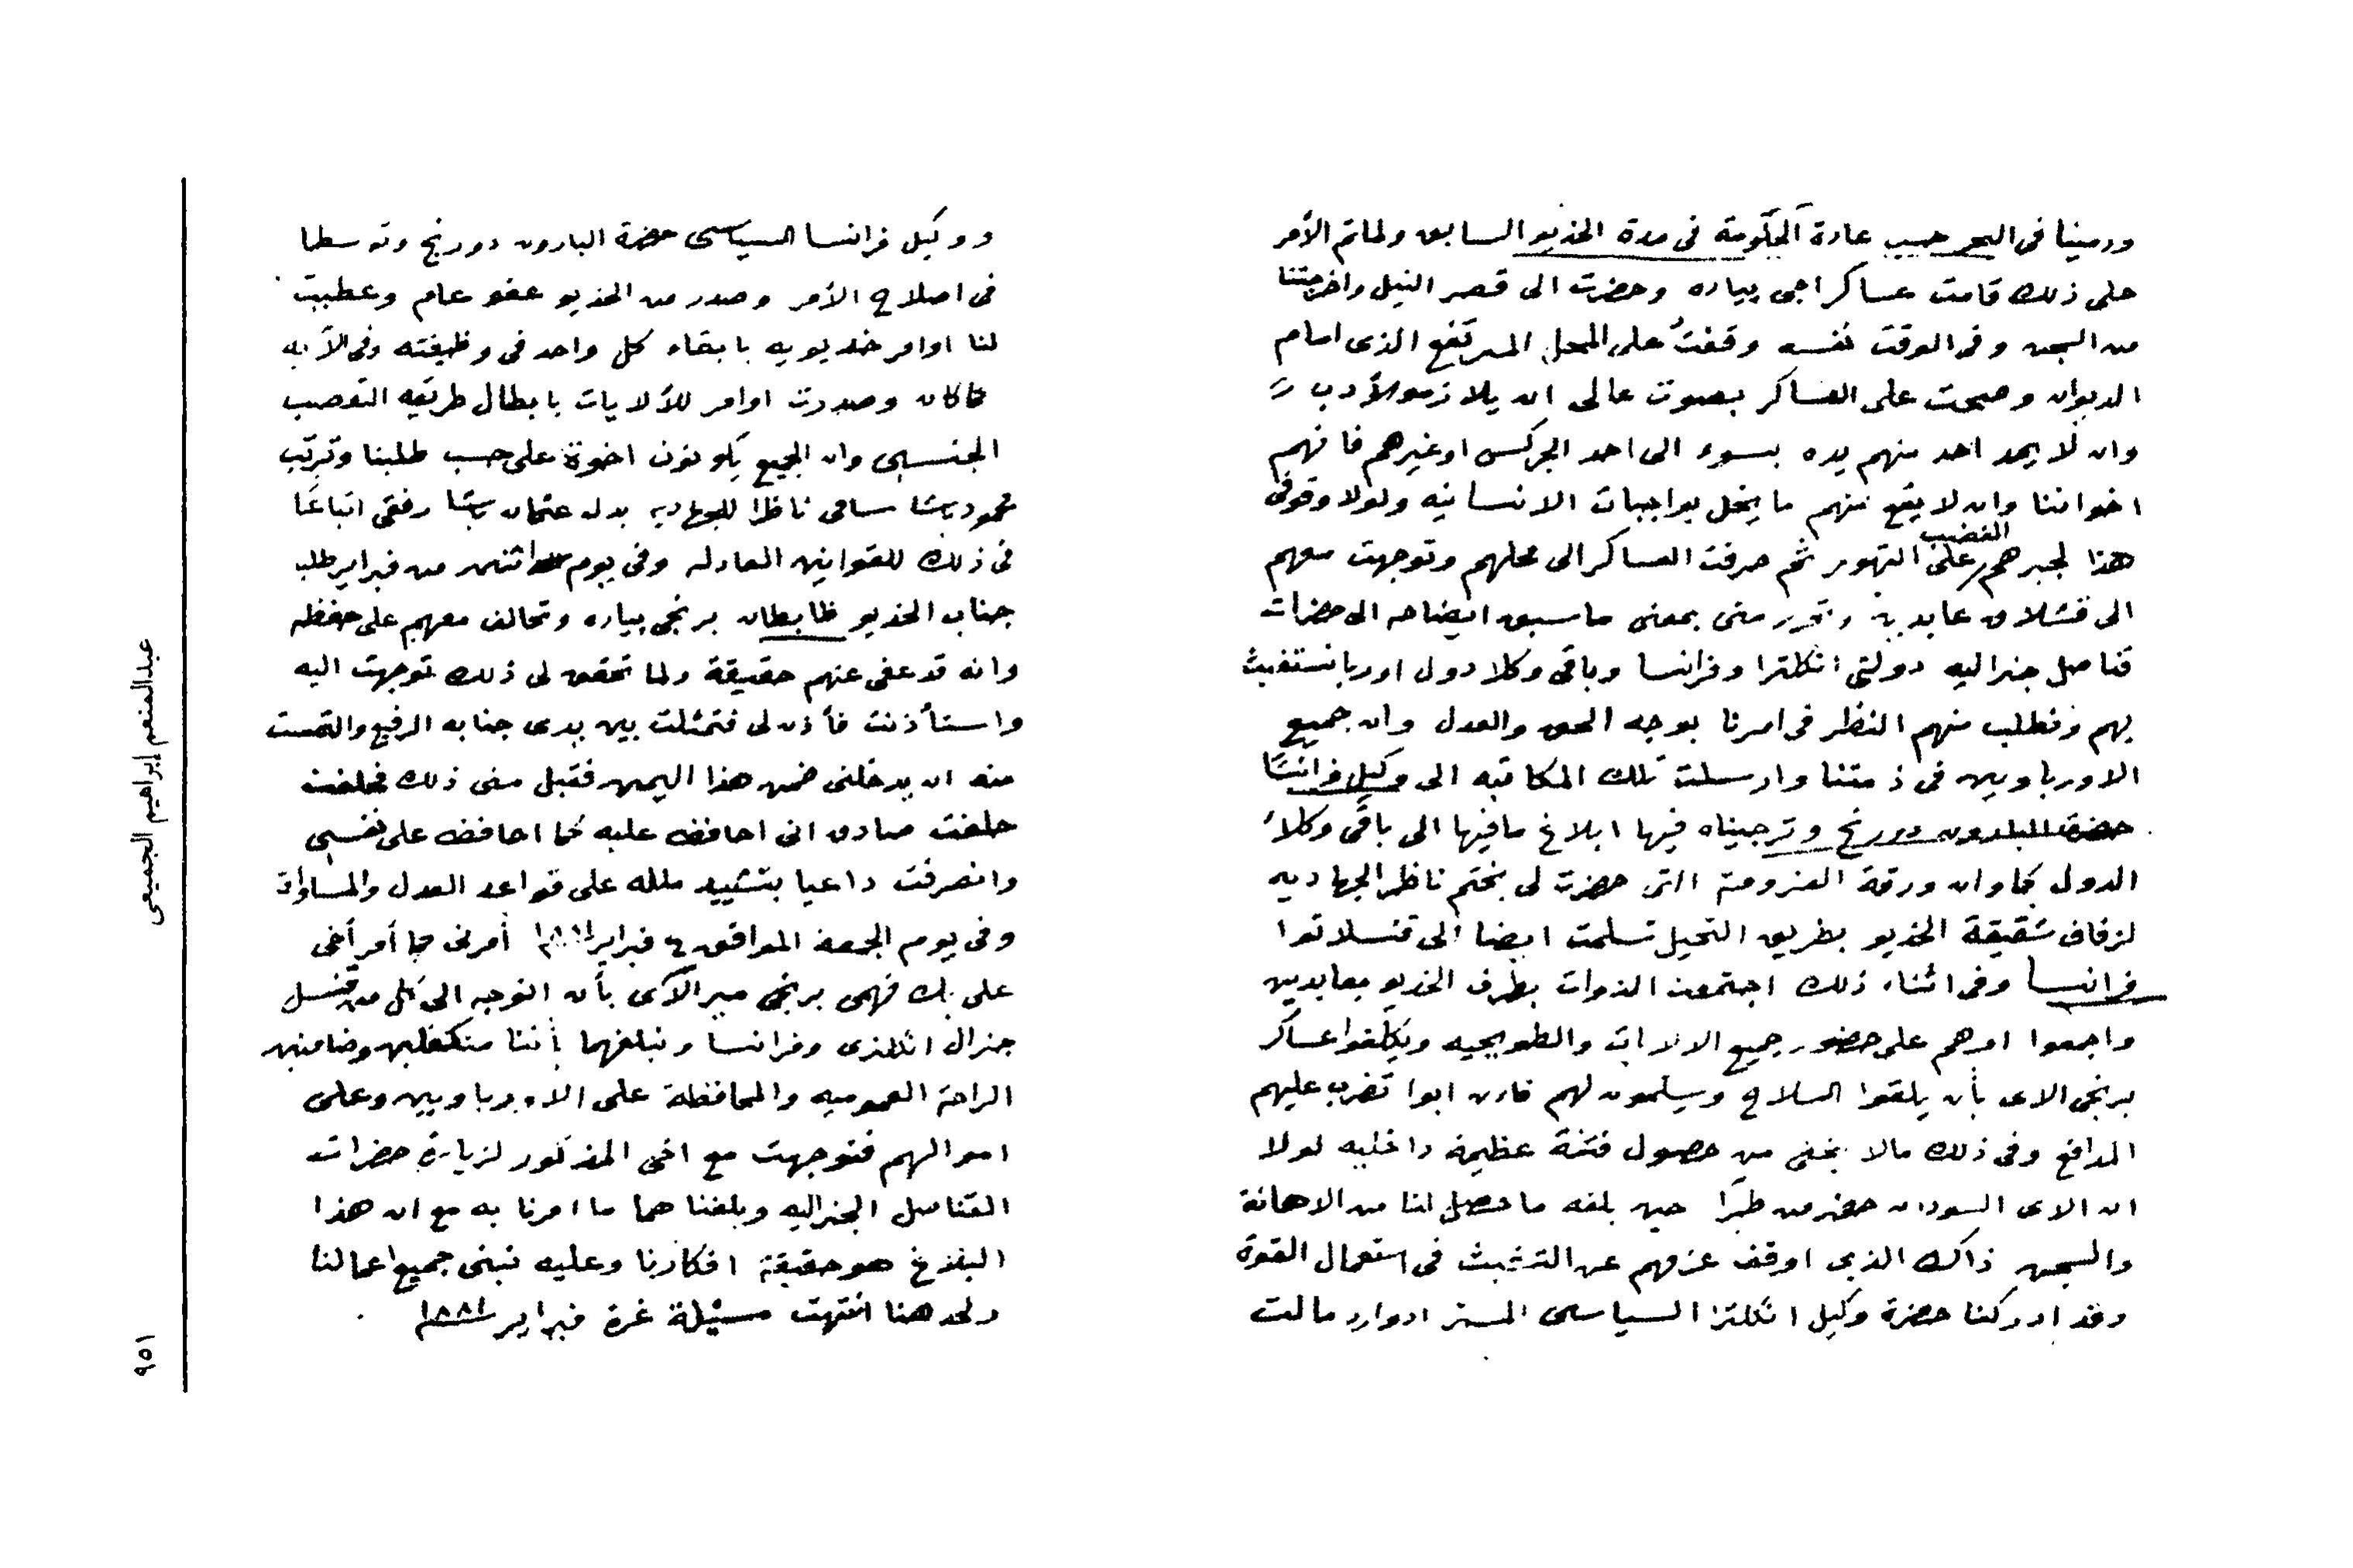 ورمينا فى البحر حسب عادة الحكومة فى مدة الخذيو السابق ولما تم الأمر
على ذلك قامت عساكر اجى بياده وحضرت الى قصر النيل واخرجتنا
من السجن وفى الوقت نفسه وقفتُ على المحل المرتفع الذى امام
الديوان وصحت على العساكر بصوت عالى ان يلازموا الأدب
وان لا يمد احد منهم يده بسوء الى احد الجركس او غيرهم فانهم
اخواننا وان لا يقع منهم ما يخل بواجبات الانسانيه ولولا وقوفى
هذا لجبرهم الغضب على التهور ثم صرفت العساكر الى محلهم وتوجهت معهم
الى قشلاق عابدين وتحرر منى بمعنى ما سبق ايضاحه الى حضرات
قناصل جنراليه دولتى انكلترا وفرانسا وباقى وكلا دول اوربا نستغيث
بهم ونطلب منهم النظر فى امرنا بوجه الحق والعدل وان جميع
الاورباويين فى ذمتنا وارسلت تلك المكاتبه الى وكيل فرانسا
حضرة البارون دورنج وترجيناه فيها ابلاغ ما فيها الى باقى وكلاء
الدول كما وان ورقة العزومة التى حضرت لى بختم ناظر الجهاديه
لزفاف شقيقة الخذيو بطريق التحيل تسلمت ايضا الى قنسلاتو
فرانسا وفى اثناء ذلك اجتمعت الذوات بطرف الخذيو بعابدين
واجمعوا امرهم على حضور جميع الالايات والطوبجيه ويكلفوا عساكر
برنجى الاى بأن يلقوا السلاح ويسلمون لهم فان ابوا تضرب عليهم
المدافع وفى ذلك مالا يخفى من حصول فتنة عظيمة داخليه لولا
ان الاى السودان حضر من طرا حين بلغه ما حصل لنا من الاهانة
والسجن ذاك الذى اوقف عزمهم عن التشبث فى استعمال القوة
وقد ادركنا حضرة وكيل انكلترا السياسى المستر ادوارد مالت
ووكيل فرانسا السياسى حضرة البارون دورنج وتوسطا
فى اصلاح الأمر وصدر من الخذيو عفو عام وعطيت
لنا اوامر خديويه بابقاء كل واحد فى وظيفته وفى الآيه
كما كان وصدرت اوامر للألايات بابطال طريقه التعصب
الجنسى وان الجميع يكونون اخوة على حسب طلبنا وترتب
محمود باشا سامى ناظرا للجهاديه بدل عثمان باشا رفقى اتباعًا
فى ذلك للقوانين العادله وفى يوم اثنين من فبراير طلب
جناب الخديو ظابطان برنجى بياده وتحالف معهم على حفظه
وانه قد عفى عنهم حقيقة ولما تحقق لى ذلك توجهت اليه
واستأذنت فأذن لى فتمثلت بين يدى جنابه الرفيع والتمست
منه ان يدخلنى ضمن هذا اليمين فقبل منى ذلك فحلفت
حلفت صادق انى احافظ عليه كما احافظ على نفسى
وانصرفت داعيا بتشييد ملكه على قواعد العدل والمساواة
وفى يوم الجمعه الموافق ٤ فبراير ١٨٨١ أمرنى كما أمر أخى
على بك فهمى برنجى مير الآى بأن اتوجه الى كل من قنسل
جنرال انكلترى وفرانسا ونبلغهما بأننا متكفلين وضامنين
الراحة العموميه والمحافظة على الاورباويين وعلى
اموالهم فتوجهت مع اخى المذكور لزيارة حضرات
القناصل الجنراليه وبلغناهما ما امرنا به مع ان هذا
البلاغ هو حقيقة افكارنا وعليه نبنى جميع اعمالنا
ولحد هنا انتهت مسئلة غرة فبراير ١٨٨١
عبدالمنعم إبراهيم الجميعى
٩٥١